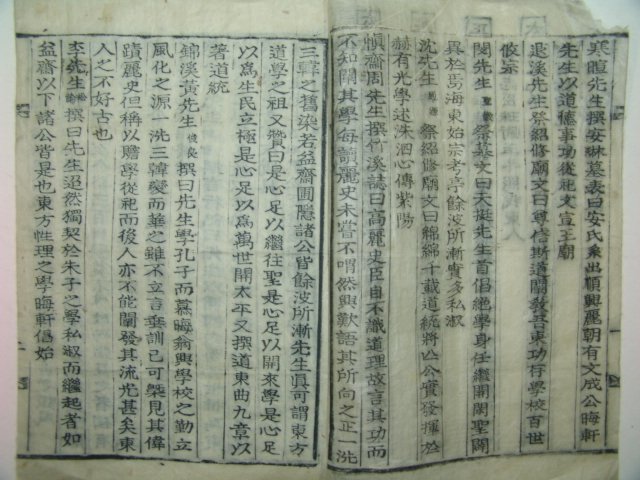 寒暄先生撰安琳墓表曰安氏系出順興麗朝有文成公晦軒
先生以道德事功從祀文宣王廟
退溪先生祭紹修廟文曰尊信斯道闢敎吾東功存學校百世
攸宗
閔先生聖徽祭墓文曰天挺先生首倡絶學身任繼開閩聖闢
異於焉海東始宗考亭餘波所漸實多私淑
沈先生 祭紹修廟文曰綿綿千載道統將公公實發揮於
赫有光學述洙泗心傳紫陽
愼齋周先生撰竹溪誌曰高麗史臣自不識道理故言其功而
不知闡其學每讀麗史未嘗不喟然興歎語其所向之正一洗
三韓之舊染若益齋圃隱諸公皆餘波所漸先生眞可謂東方
道學之祖又贊曰是心足以繼往聖是心足以開來學是心足
以爲生民立極是心足以爲萬世開太平又撰道東曲九章以
著道統
錦溪黃先生俊良撰曰先生學孔子而慕晦翁興學校之勤立
風化之源一洗三韓變而華之雖不立言垂訓已可槩見其偉
蹟麗史但稱以贍學從祀而後人亦不能闡發其流光甚矣東
人之不好古也
李先生 撰曰先生逈然獨契於朱子之學私淑而繼起者如
益齋以下諸公皆是也東方性理之學晦軒倡始